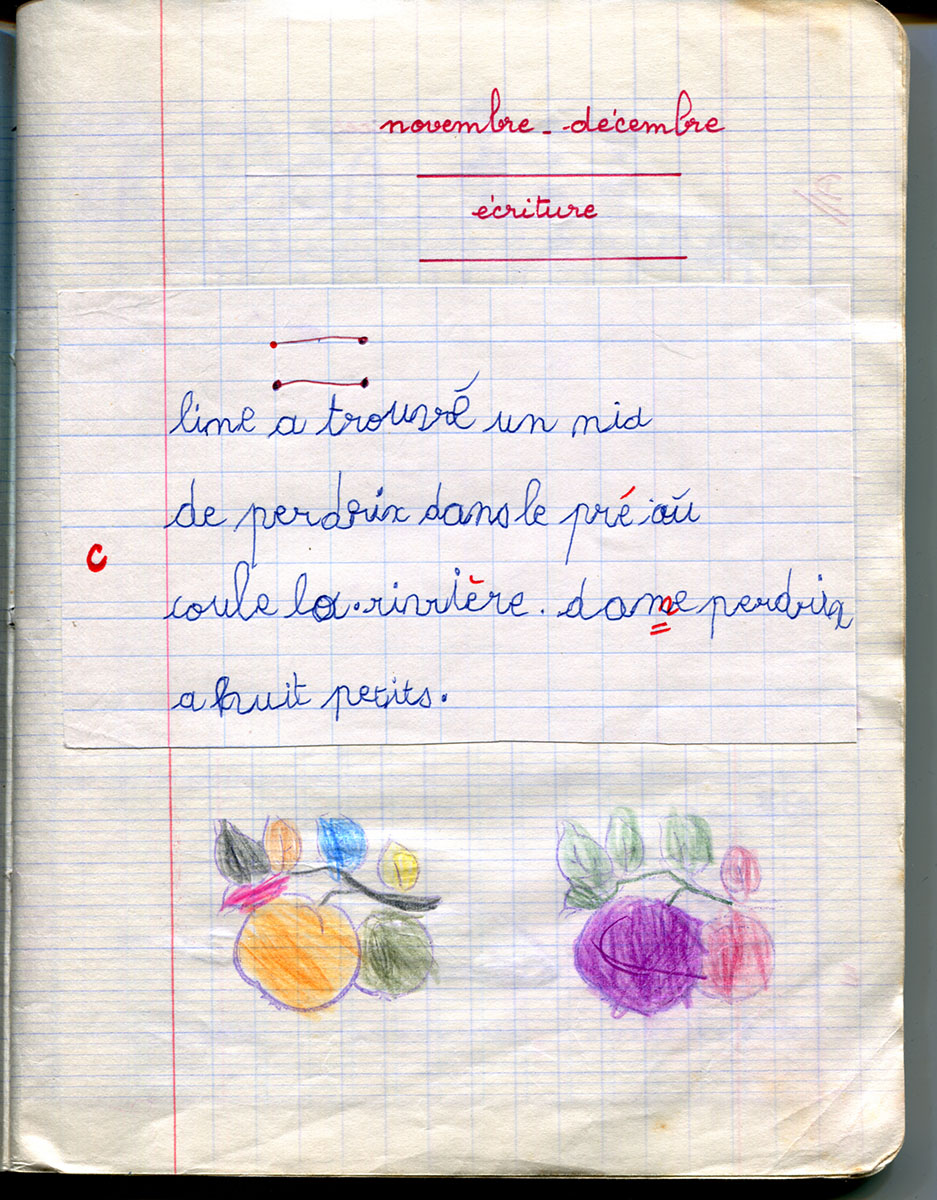 novembre - décembre
écriture
line a trouvé un nid
de perdrix dans le pré où
C
coule la rivière. dame perdrix
a huit petits.